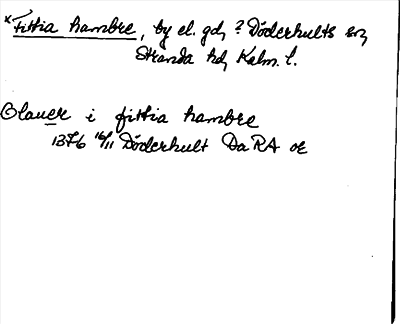 ×Fittia hambre, by el. gd, ? Döderhults sn,
Stranda hd, Kalm. l.
Olauer i fittia hambre
1376 16/11 Döderhult Da RA or